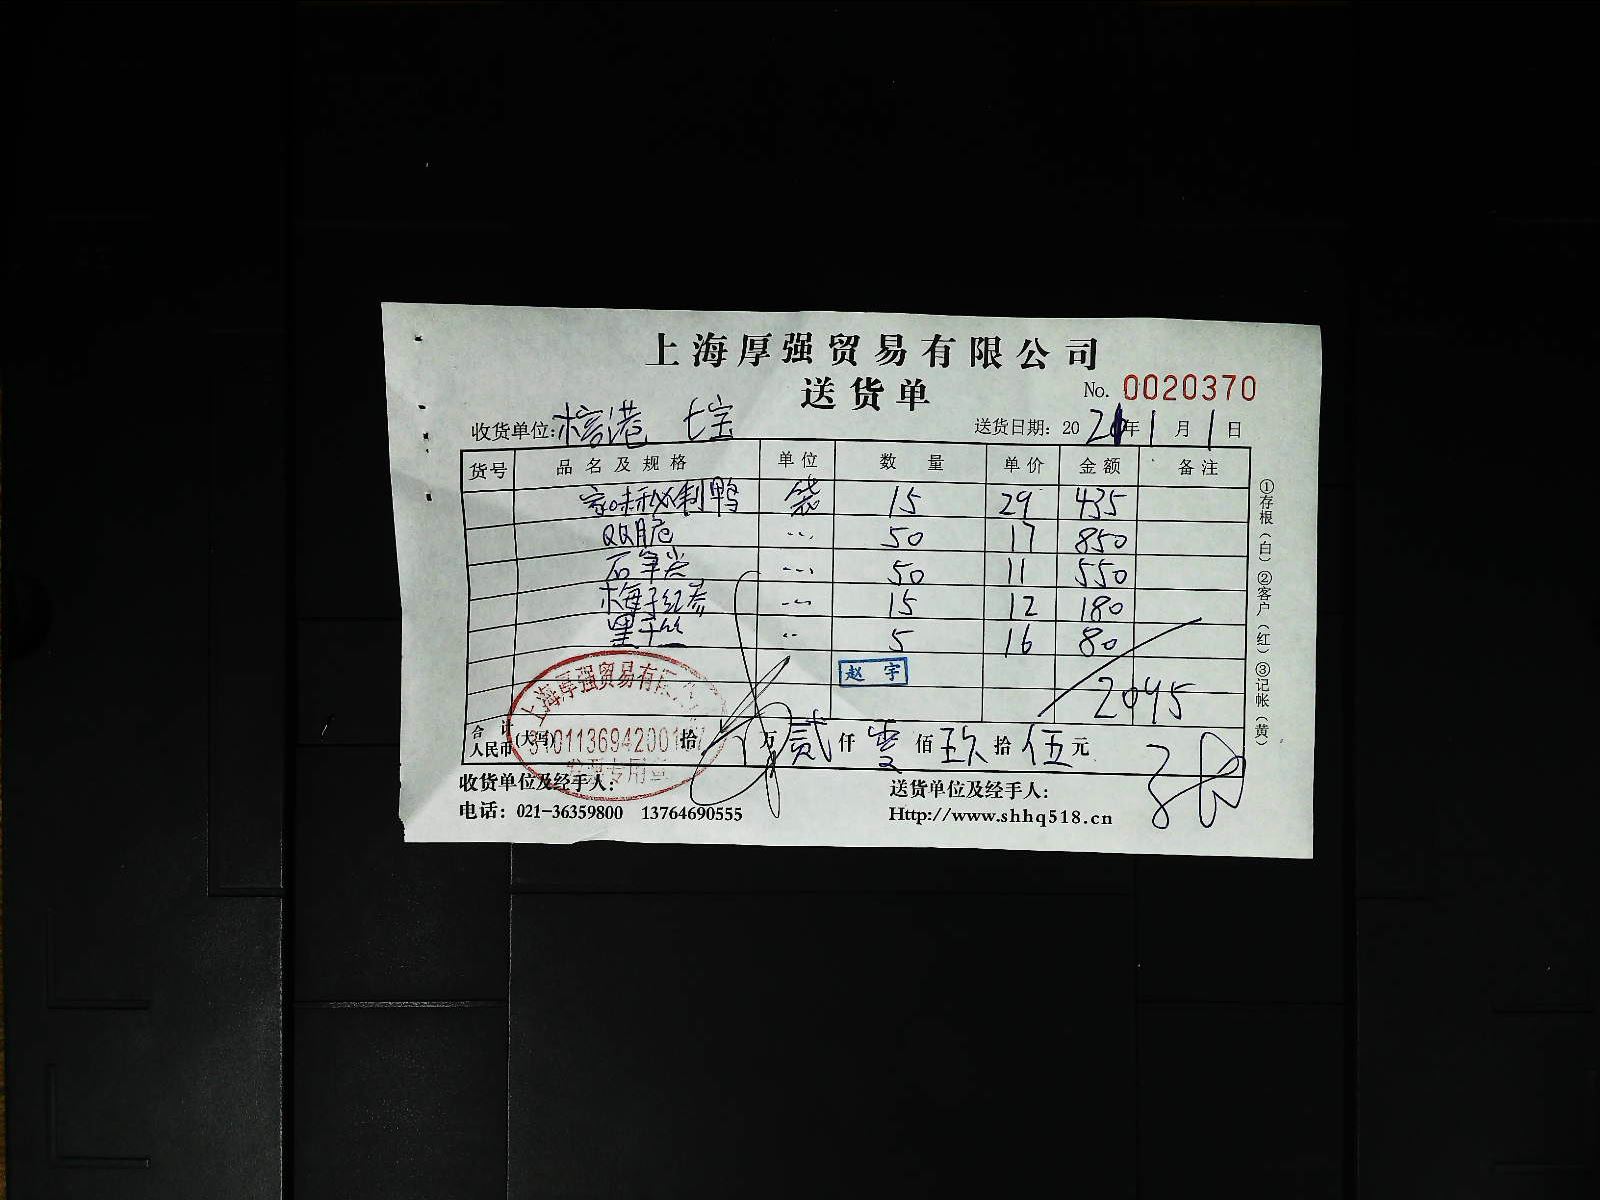 上海厚强贸易有限公司
送货单
No. 0020370
收货单位:榕港 七宝
送货日期: 2021年1月1日
货号 品名及规格 单位 数量 单价 金额 备注
家味秘制鸭 袋 15 29 435
QQ脆 … 50 17 850
石笔尖 … 50 11 550
梅子红参 … 15 12 180
黑千丝 .. 5 16 80
赵宇
2095
合计人民币(大写) 拾 万贰仟零佰玖拾伍元
上海厚强贸易有限
发票专用章
收货单位及经手人:
送货单位及经手人:
电话: 021-36359800 13764690555
Http://www.shhq518.cn
①存根(白)②客户(红)③记帐(黄)